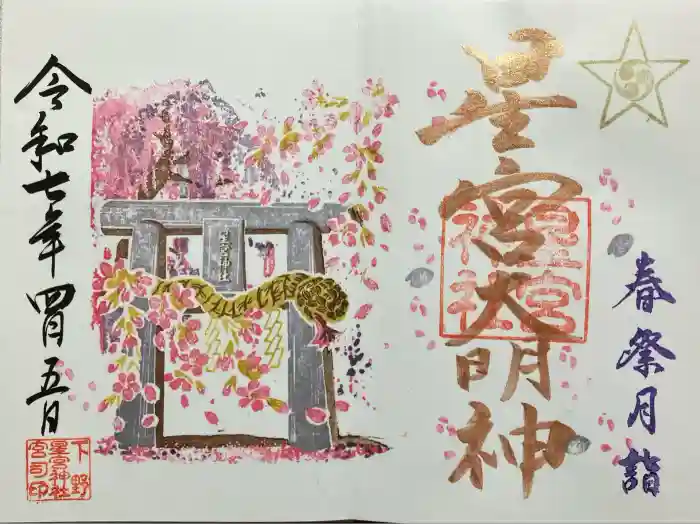 星宮大明神
星宮神社
春祭月詣
星宮神社
令和七年四月五日
下野
星宮神社
宮司印